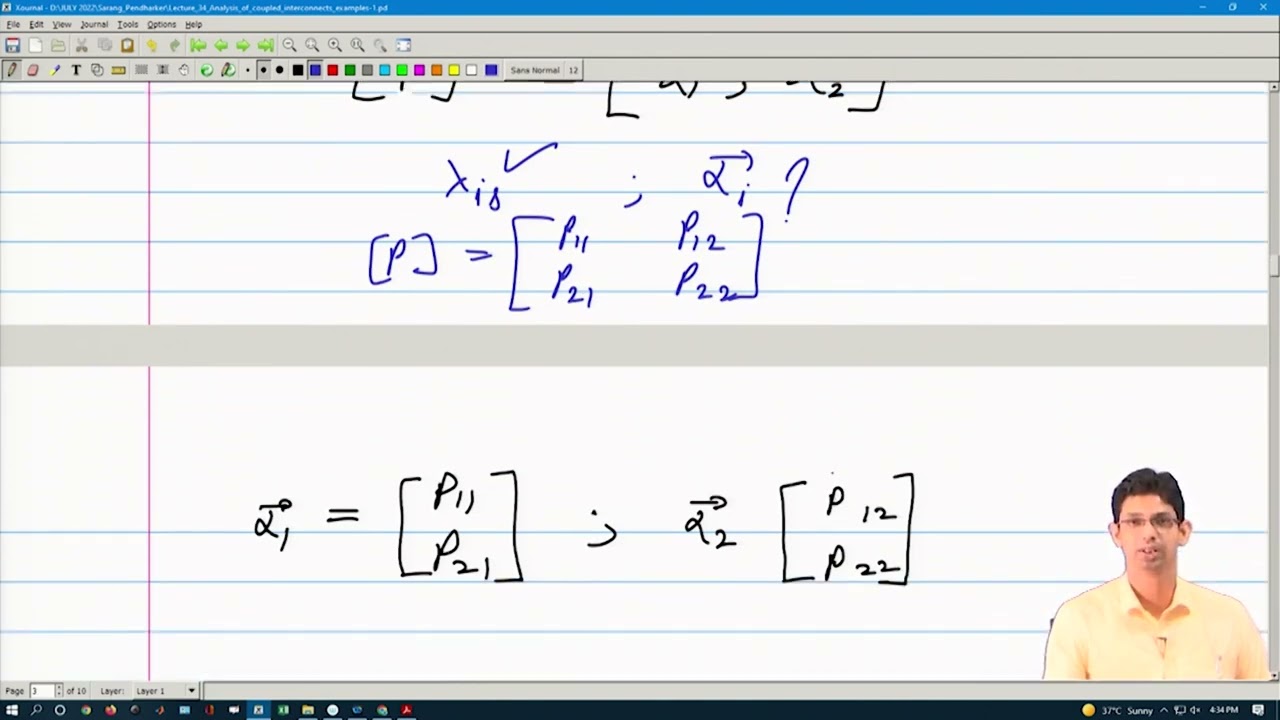 Xournal - D:\JULY 2022\Sarang_Pendharker\Lecture_34_Analysis_of_coupled_interconnects_examples-1.pd
File Edit View Journal Tools Options Help
Sans Normal 12
λis ✓ ; α⃗i ?
[P] = [P11 P12
P21 P22]
α⃗1 = [P11
P21] ; α⃗2 [P12
P22]
Page 3 of 10 Layer: Layer 1
37°C Sunny 4:34 PM